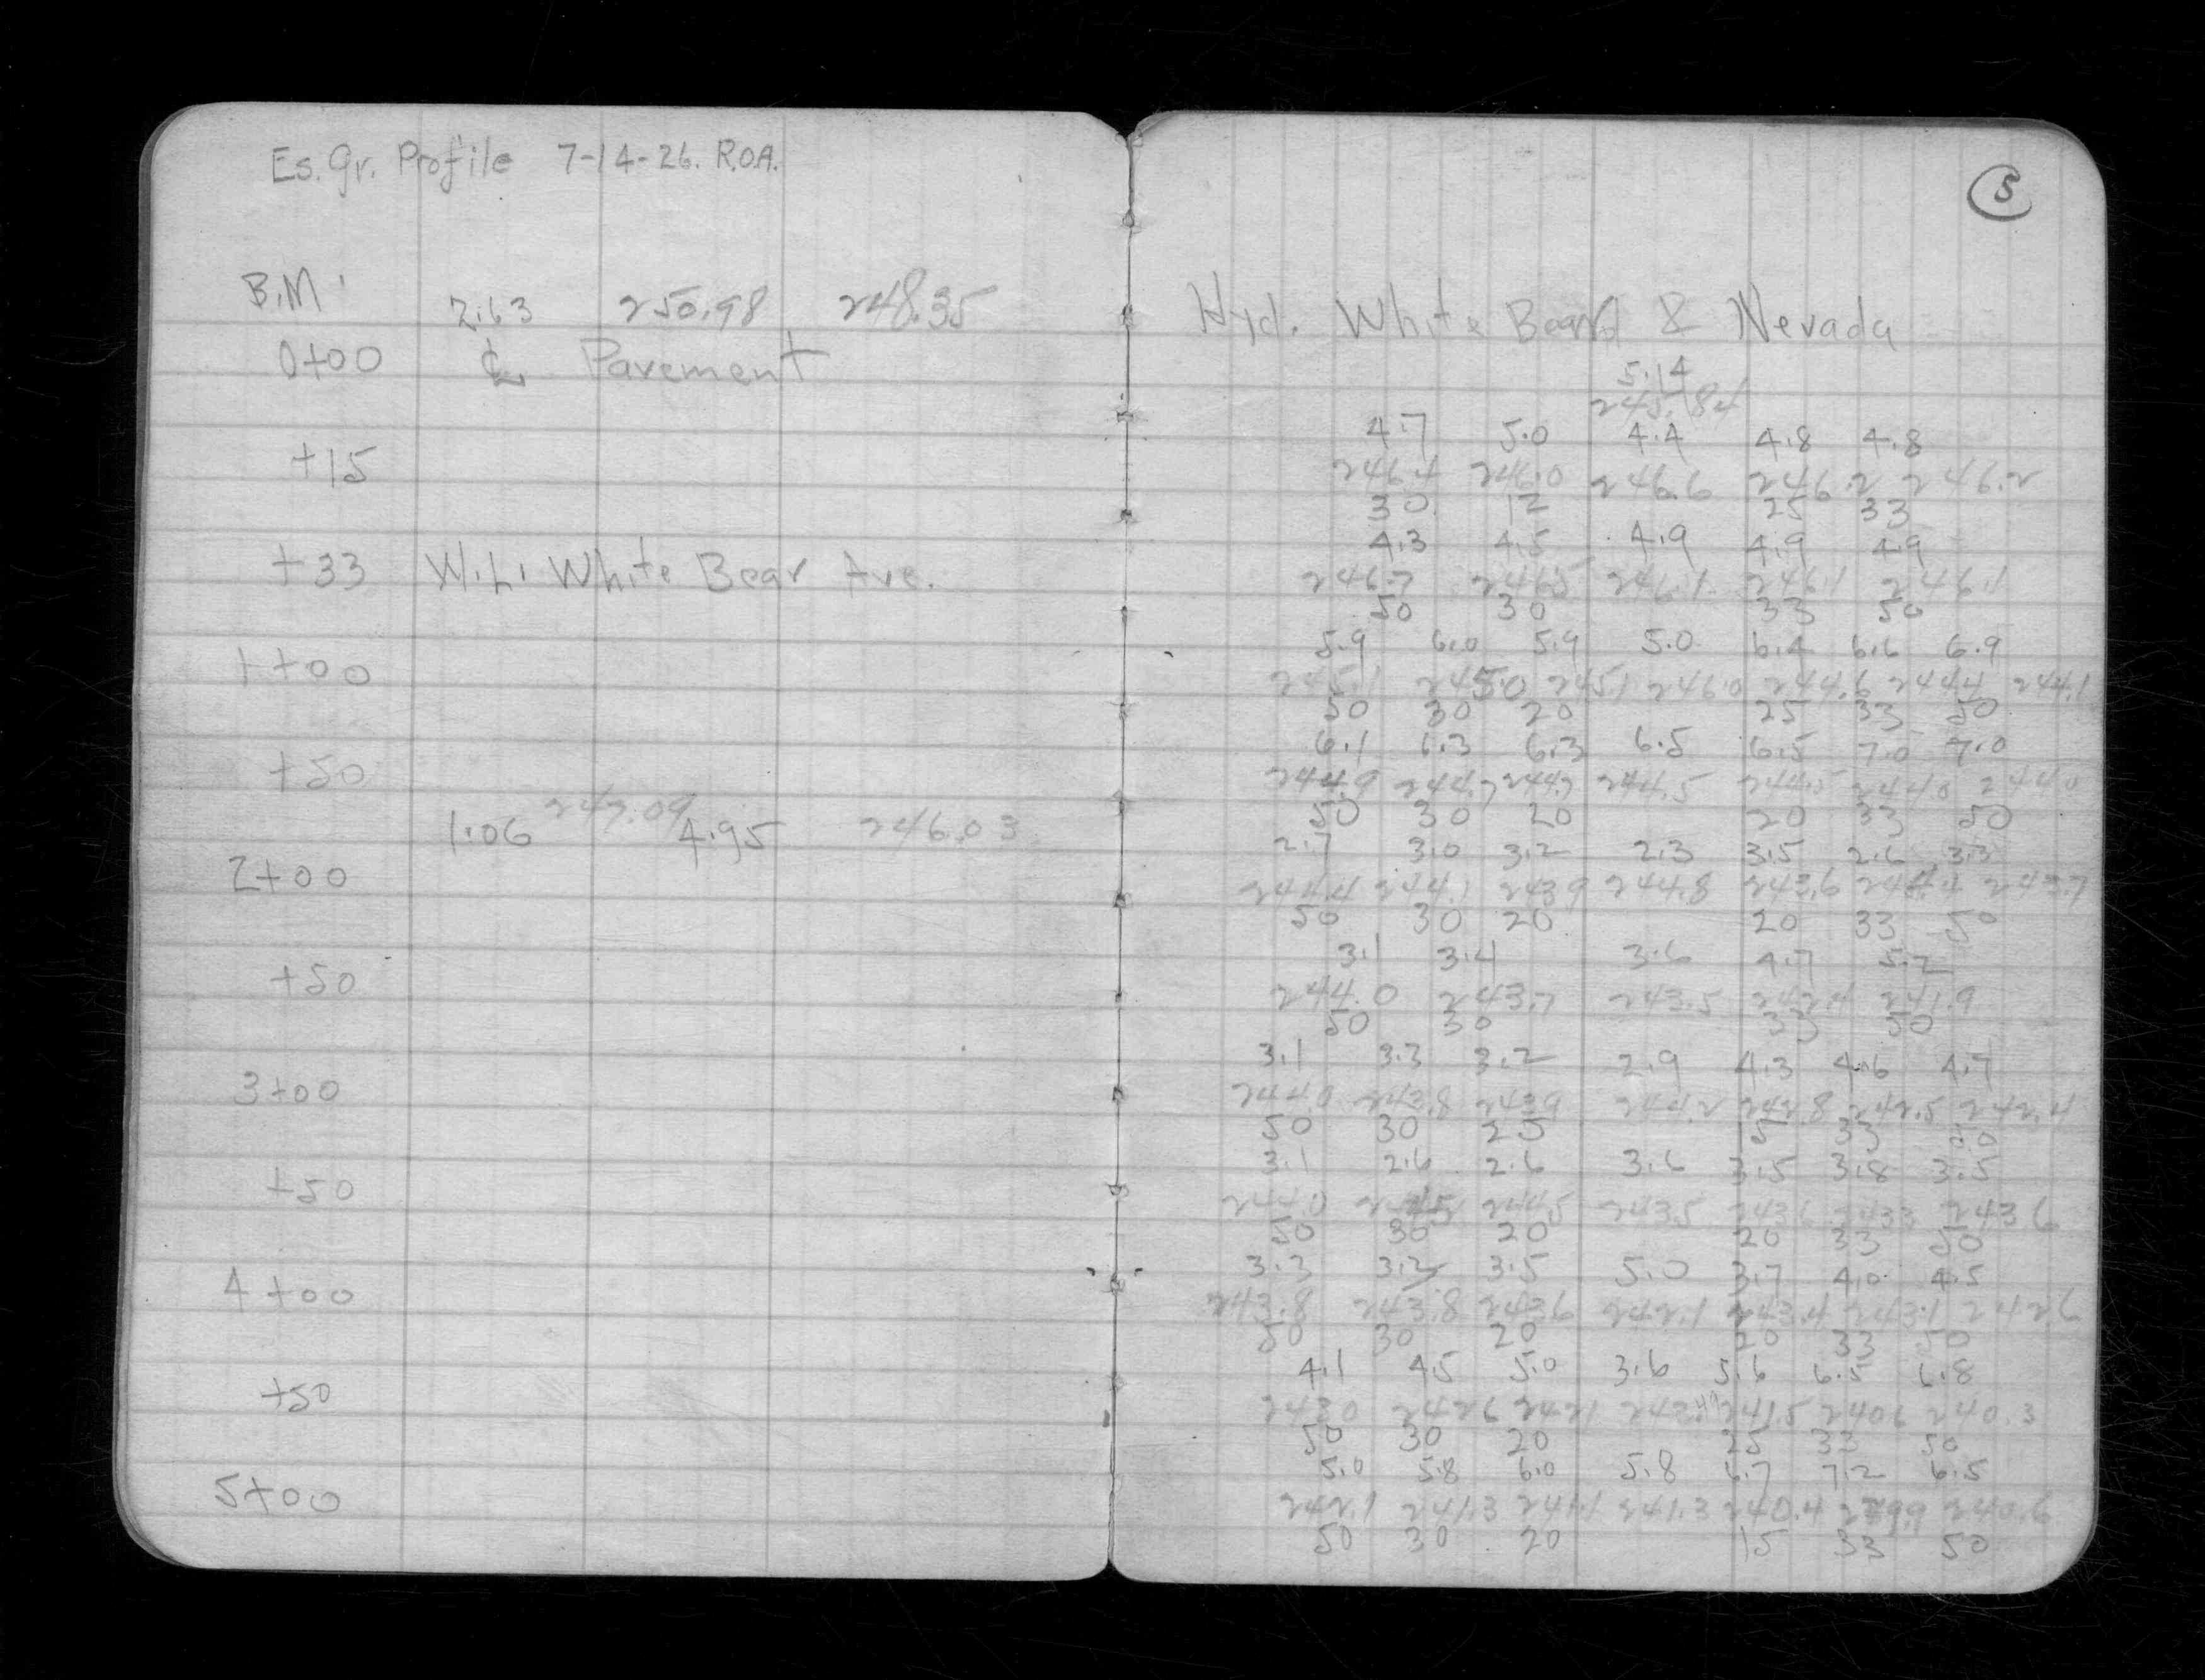 Es. Gr. Profile 7-14-26. R.O.A.
B.M. 2.63 250.98 248.35
0+00 ℄ Pavement
+15
+33 W.L. White Bear Ave.
1+00
+50
1.06 247.09 4.95 246.03
2+00
+50
3+00
+50
4+00
+50
5+00
5
Hyd. White Bear & Nevada
5.14
245.84
4.7 5.0 4.4 4.8 4.8
246.4 246.0 246.6 246.2 246.2
30 12 25 33
4.3 4.5 4.9 4.9 4.9
246.7 246.5 246.1 246.1 246.1
50 30 33 50
5.9 6.0 5.9 5.0 6.4 6.6 6.9
245.1 245.0 245.1 246.0 244.6 244.4 244.1
50 30 20 25 33 50
6.1 6.3 6.3 6.5 6.5 7.0 7.0
244.9 244.7 244.7 244.5 244.5 244.0 244.0
50 30 20 20 33 50
2.7 3.0 3.2 2.3 3.5 2.6 3.3
244.4 244.1 243.9 244.8 243.6 244.4 243.7
50 30 20 20 33 50
3.1 3.4 3.6 4.7 5.2
244.0 243.7 243.5 242.4 241.9
50 30 33 50
3.1 3.3 3.2 2.9 4.3 4.6 4.7
244.0 243.8 243.9 244.2 242.8 242.5 242.4
50 30 25 33 50
3.1 2.6 2.6 3.6 3.5 3.8 3.5
244.0 244.5 244.5 243.5 243.6 243.3 243.6
50 30 20 20 33 50
3.3 3.2 3.5 5.0 3.7 4.0 4.5
243.8 243.8 243.6 242.1 243.4 243.1 242.6
50 30 20 20 33 50
4.1 4.5 5.0 3.6 5.6 6.5 6.8
243.0 242.6 242.1 241.5 240.6 240.3
50 30 20 25 33 50
5.0 5.8 6.0 5.8 6.7 7.2 6.5
242.1 241.3 241.1 241.3 240.4 239.9 240.6
50 30 20 15 33 50